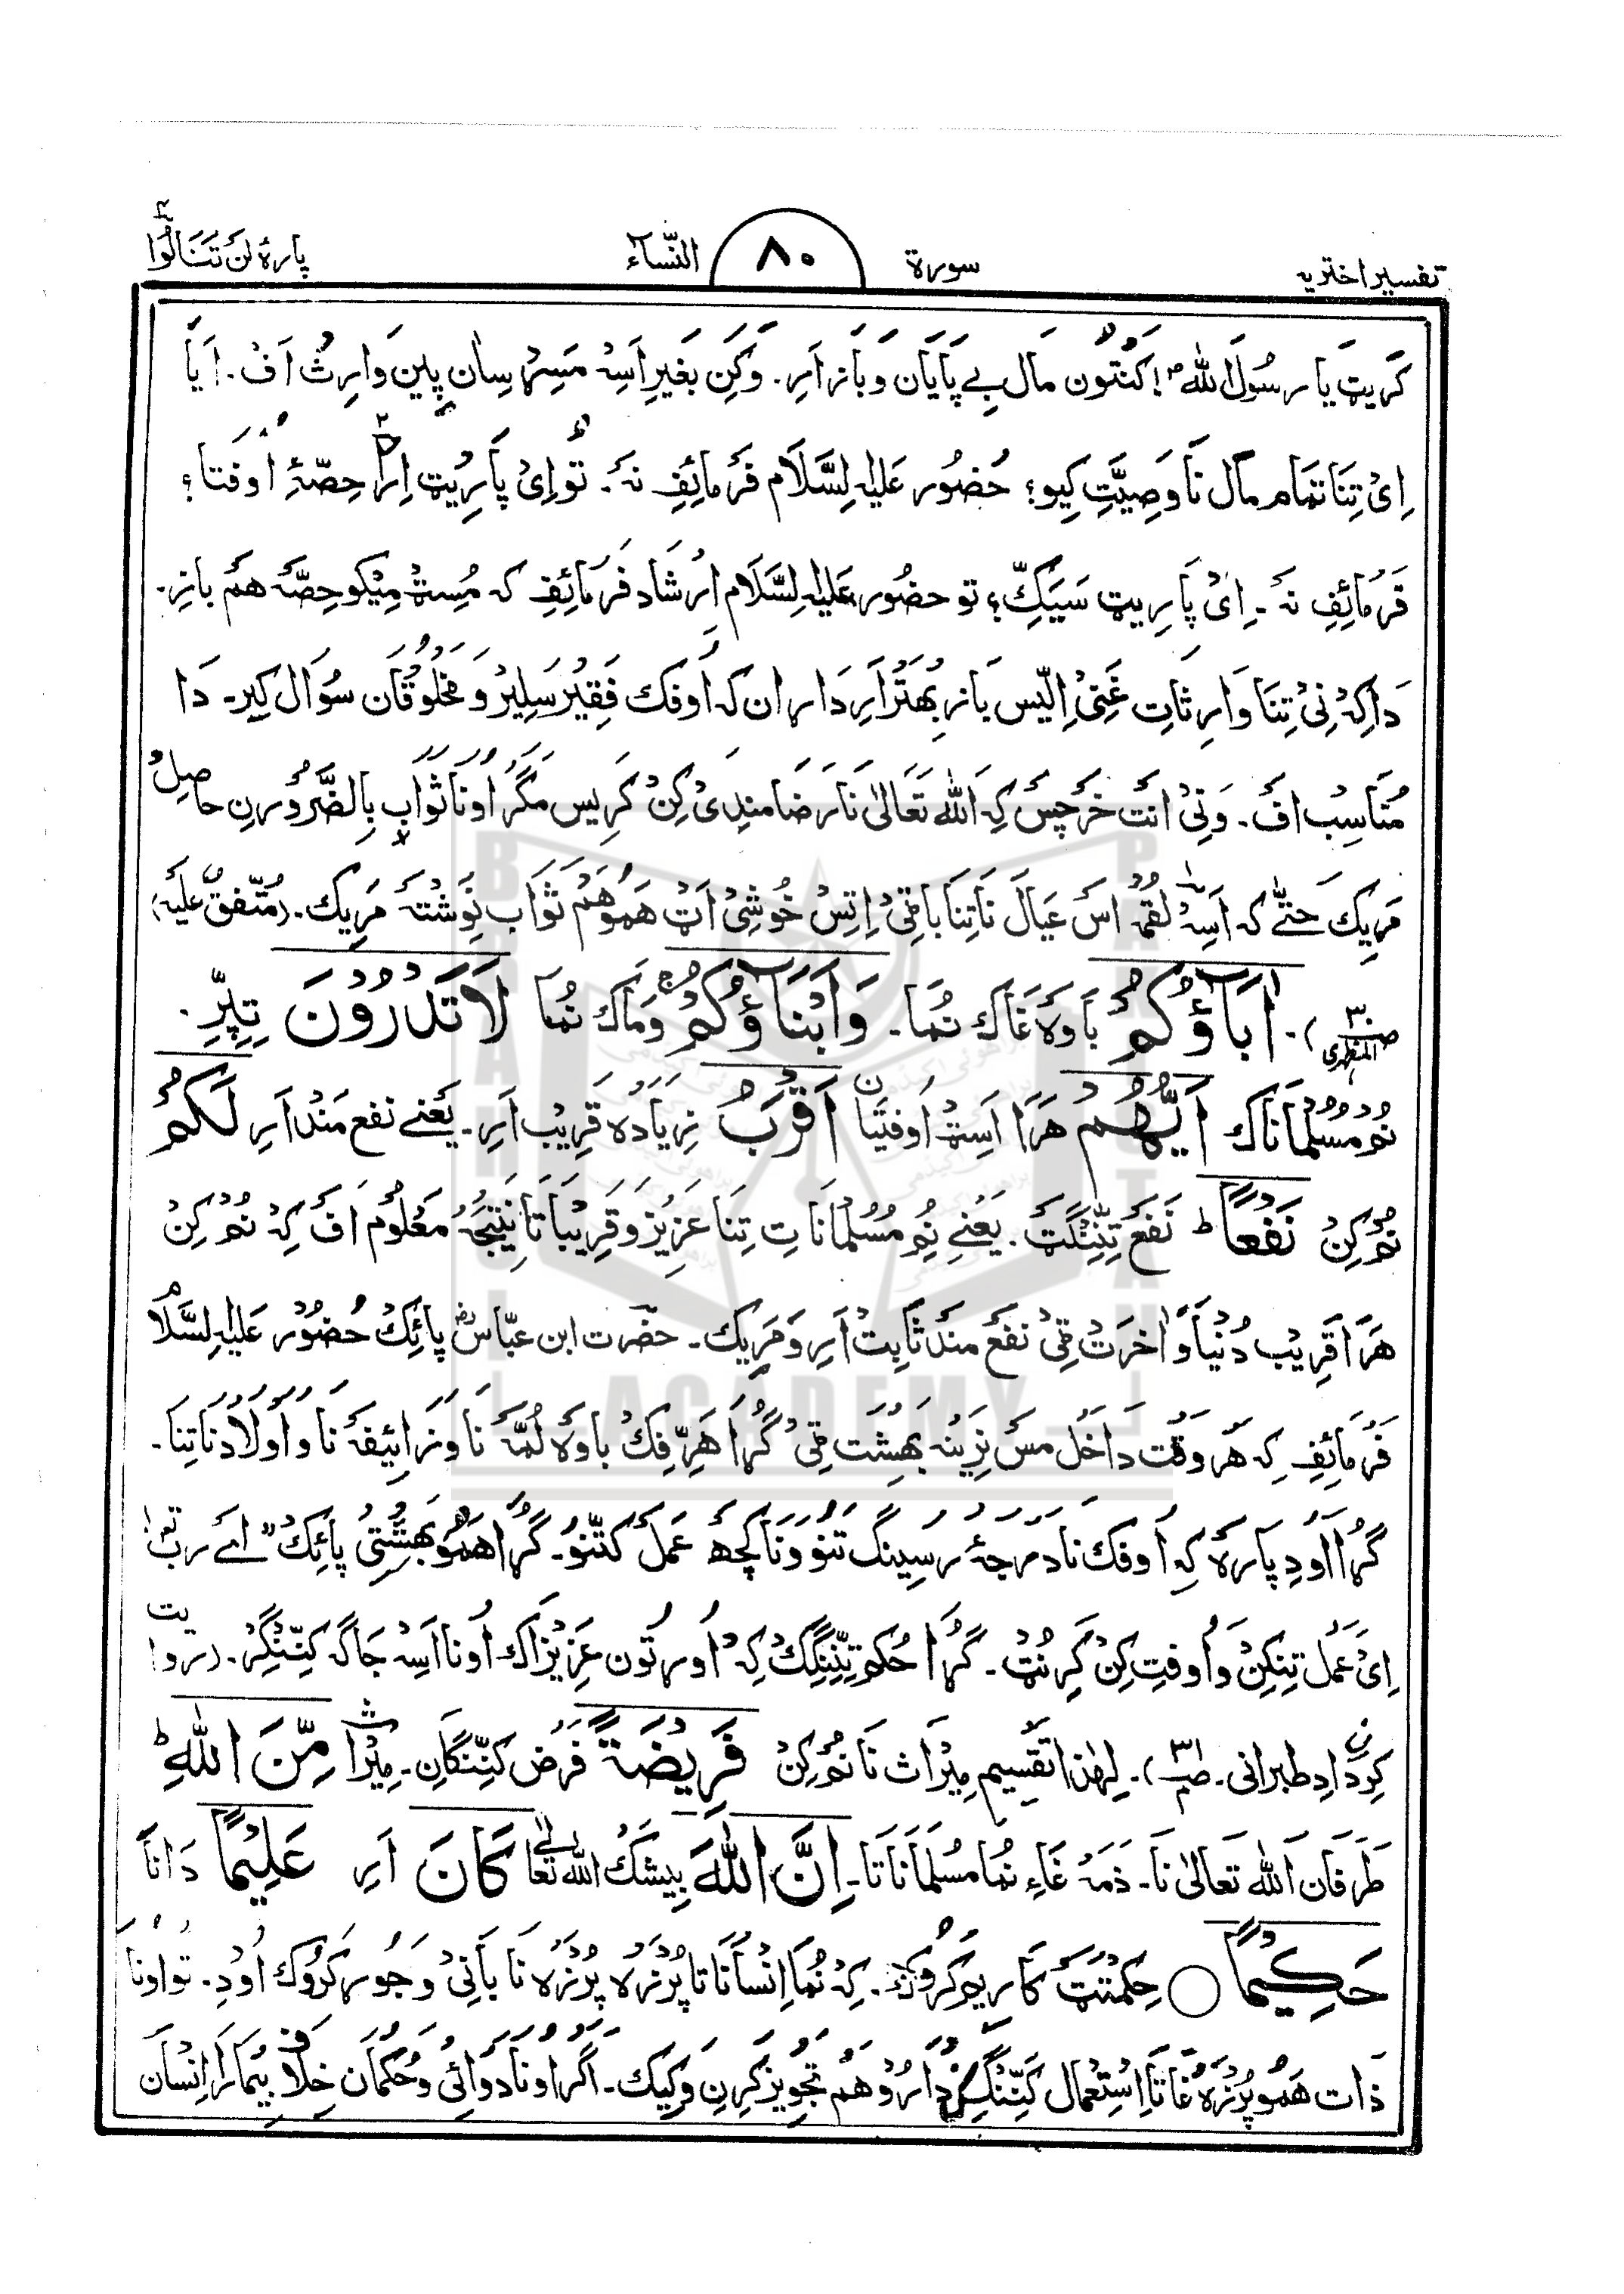 تفسیر اختریہ
سورۃ ۸۰ النّسآء
پارۂ لن تنالوا ۴
کریٹ یا رسول اللهؐ! کنتون مال بے پایان و باز ارِ. وکن بغیر اسِہ مسِڑسان پین وارث اف. ایا
اِیْ تِنا تمام مال نا وصیّتِ کیو؟ حُضُور علیہ لسَّلام فرمائِفِ نہ۔ تو اِیْ پاریٹ اِرا حِصّہِ اوفتا؟
فرمائِفِ نہ۔ اِیْ پاریٹ سَیَکِّ؟ تو حضور علیہ لسَّلام ارشاد فرمائِفِ کہ مُسِٹ مِیکو حِصّہ ھم بازِ.
داکہ نِیْ تِنا وارثاتِ غنی اِلّیس باز بھتر ارِ داران کہ اوفک فقیر سلیر و مخلوقان سوال کیر۔ دا
مُناسب اف۔ ونِیْ انت خرچس کہ الله تعالیٰ نا رضامندی کن کریس مگر اونا ثواب بالضّرورن حاصل
مریک حتّٰی کہ اسِہ لقمہ اس عیال نا تِنا باقی اِتِس خوشی اٹ ھمو ھم ثواب نوشتہ مریک۔ (مُتّفق علیہ)
المظھری صـ۳۰)۔ اٰبَآؤُکُمْ باوہ غاک نُما۔ وَاَبْنَآؤُکُمْ وماک نُما لَا تَدْرُوْنَ تِپرِّ.
نُم مسلماناک اَیُّھُمْ ھرا اسِٹ اوفتیان اَقْرَبُ زیادہ قریب ارِ۔ یعنے نفع مند ارِ لَکُمْ
نُم کِن نَفْعًا ط نفع تِنِّنگٹ۔ یعنے نُم مُسلماناتِ تِنا عزیز و قریباتا نتیجہ معلوم اف کہ نُم کِن
ھرا قریب دُنیا و اٰخرت ٹی نفع مند ثابت ارِ و مریک۔ حضرت ابن عبّاسؓ پائِک حُضور علیہ لسَّلام
فرمائِفِ کہ ھر وقت داخل مس نرینہ بھِشت ٹی گڑا ھرّفک باوہ لُمّہ نا و زائِیفہ نا و اولادنا تِنا۔
گڑا اودِ پارہ کہ اوفک نا درجہ رسینگ تنو و نا کچھ عمل کتنو۔ گڑا ھمو بھشتی پائِک "اے رب تعالیٰ
اِیْ عمل تِنکِن و اوفتِ کِن کرِنُٹ۔ گڑا حُکم تِنِّنگک کہ اورتون عزیزاک اونا اسِہ جاگہ کنِّنگر۔ (روایت
کردادِ طبرانی۔ صـ۳۱)۔ لِھٰذا تقسیم میراث نا نُم کِن فَرِیْضَۃً فرض کنِّنگانِ۔ میراث مِّنَ اللهِ ط
طرفان الله تعالیٰ نا۔ ذمہ غاءِ نُما مسلماناتا۔ اِنَّ اللهَ بیشک الله تعالیٰ کَانَ ارِ عَلِیْمًا دانا
حَکِیْمًا ○ حکمتٹ کاریم کروک. کہ نُما انساناتا پُرزہ پُرزہ نا بانی وجور کروک اودِ۔ تو اونا
ذات ھمو پُرزہ غاتا استعمال کنِّنگ دارو ھم تجویز کرِن و کیک۔ اگر اونا دوائی و حُکمان خلاف بیمار انسان